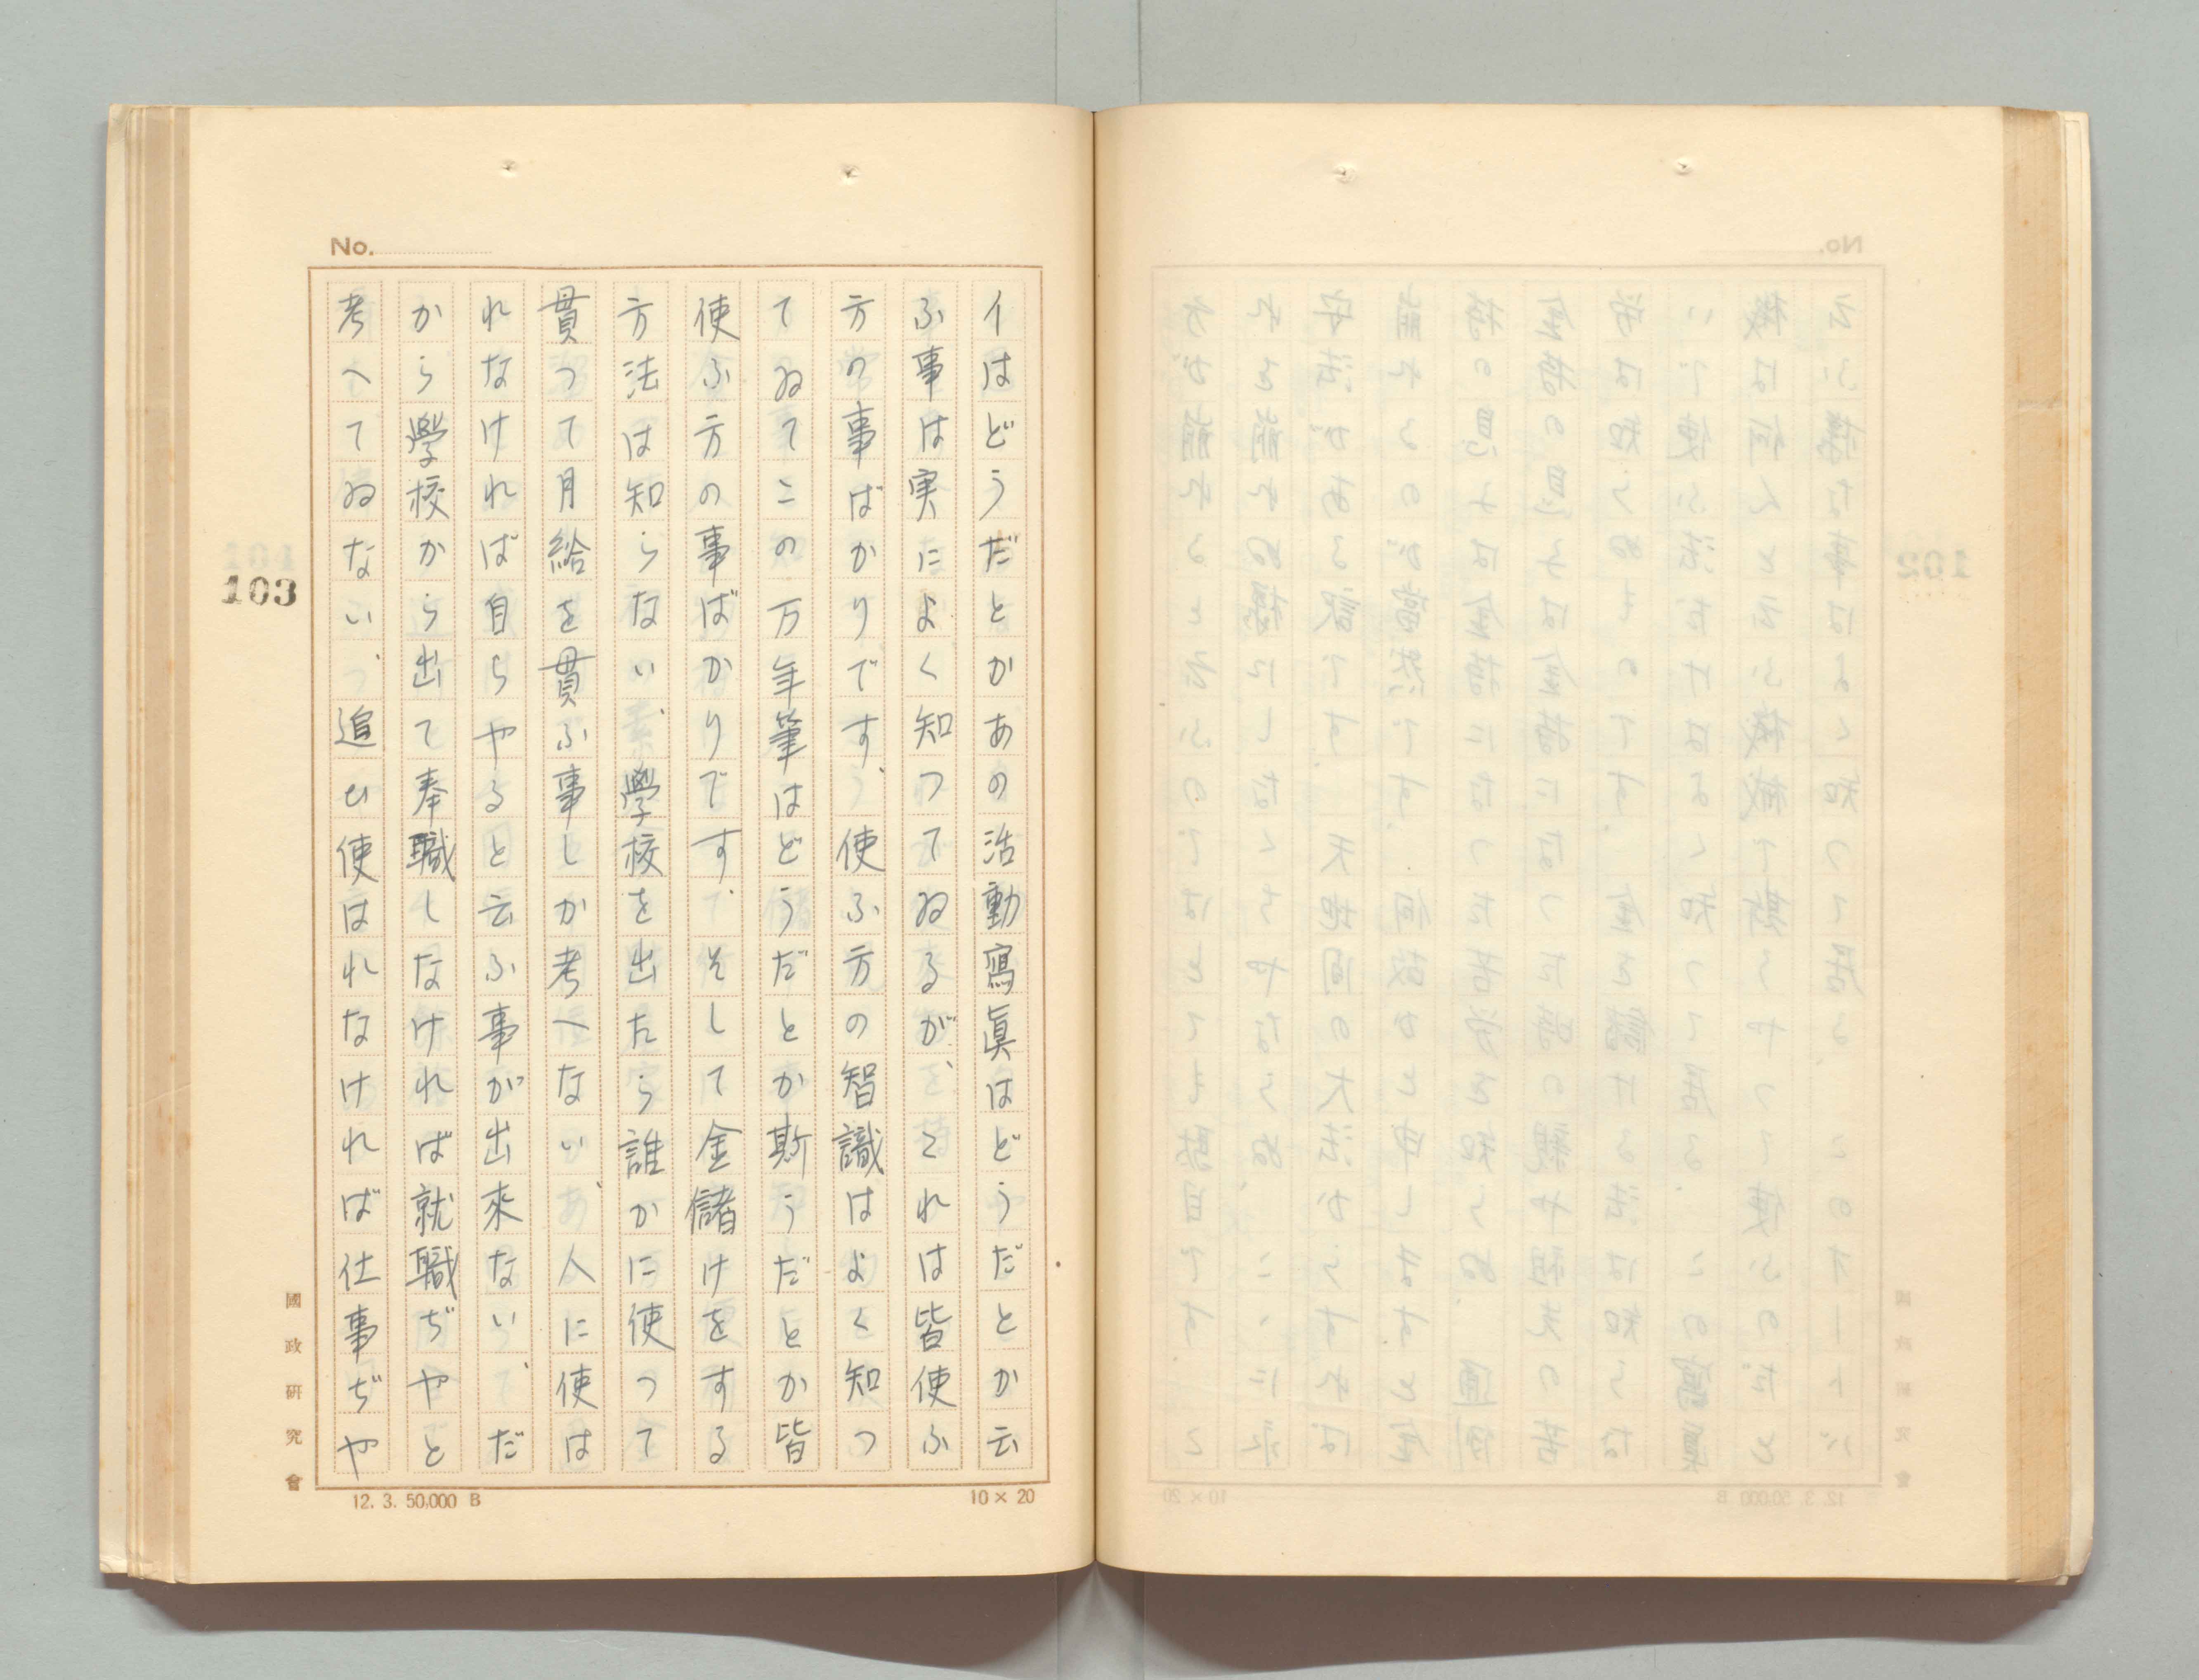 No.
イはどうだとかあの活動寫眞はどうだとか云
ふ事は実によく知つてゐるが、それは皆使ふ
方の事ばかりです、使ふ方の智識はよく知つ
てゐてこの万年筆はどうだとか斯うだとか皆
使ふ方の事ばかりです、そして金儲けをする
方法は知らない、學校を出たら誰かに使つて
貰つて月給を貰ふ事しか考へない、人に使は
れなければ自らやると云ふ事が出來ない、だ
から學校から出て奉職しなければ就職ぢやと
考へてゐない、追ひ使はれなければ仕事ぢや
103
國政研究會
12. 3. 50,000 B
10×20